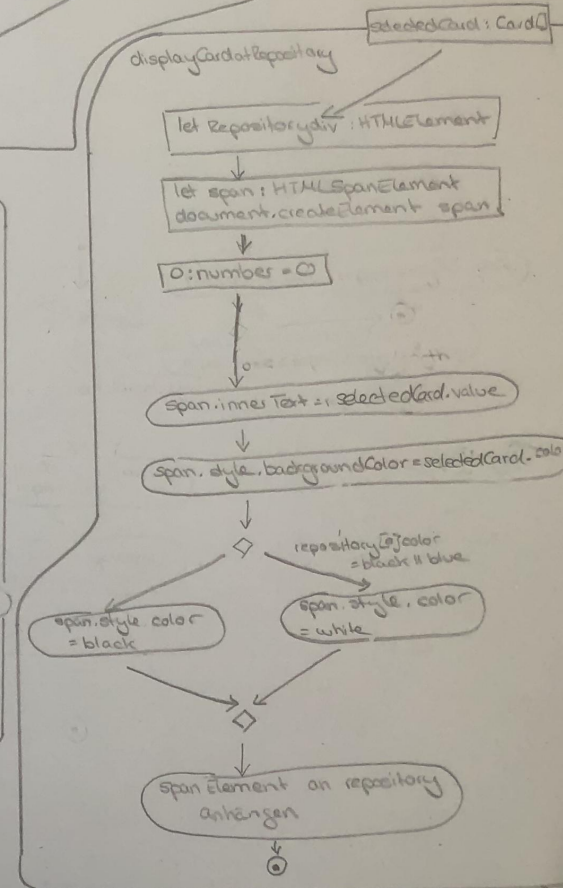 selectedCard: Card[]
displayCardatRepository
let Repositorydiv: HTMLElement
let span: HTMLSpanElement
document.createElement span
0:number = 0
span.innerText = selectedCard.value
span.style.backgroundColor = selectedCard.colo
repository[0]color
= black || blue
span.style.color
= black
span.style.color
= white
span Element an repository
anhängen